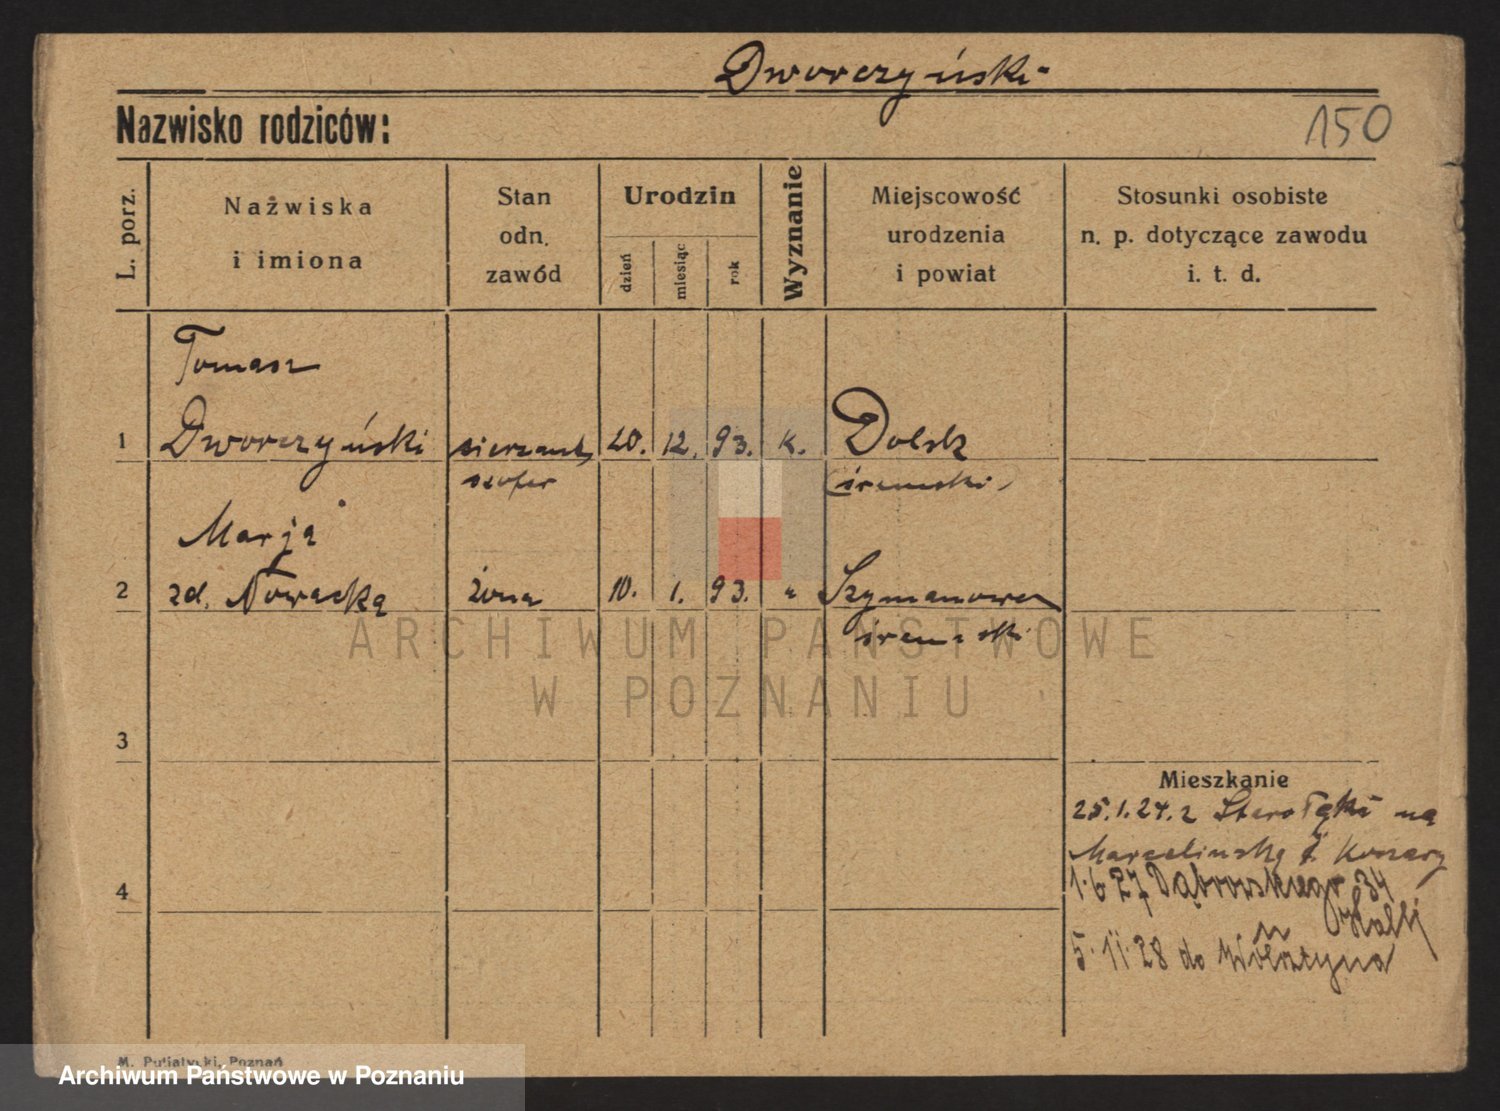 Dworczyński
Nazwisko rodziców:
150
L. porz.
Nazwiska
i imiona
Stan
odn.
zawód
Urodzin
dzień
miesiąc
rok
Wyznanie
Miejscowość
urodzenia
i powiat
Stosunki osobiste
n. p. dotyczące zawodu
i. t. d.
Tomasz
1 Dworczyński sierżant, 20. 12. 93. k. Dolsk
szofer (śremski)
Marja
2 zd. Nowacka żona 10. 1. 93. " Szymanowo
śremski
ARCHIWUM PAŃSTWOWE
W POZNANIU
3
Mieszkanie
25.1.24. z Starołęki na
Marcelińską koszary
4
1.6 27 Dąbrowskiego 34
u
5. 11. 28 do Wolsztyna
M. Putiatycki, Poznań
Archiwum Państwowe w Poznaniu